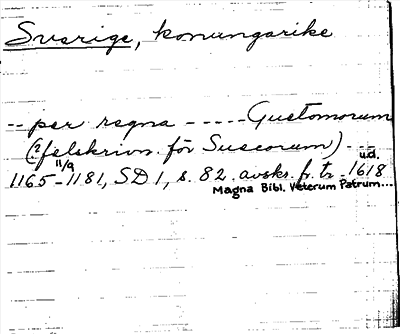 Sverige, konungarike
-- per regna ----- Guetomorum
(? felskrivn. för Sueorum) ---
1165-11/9 1181, SD 1, s. 82. avskr. fr. tr. u.å. 1618
Magna Bibl. Veterum Patrum...